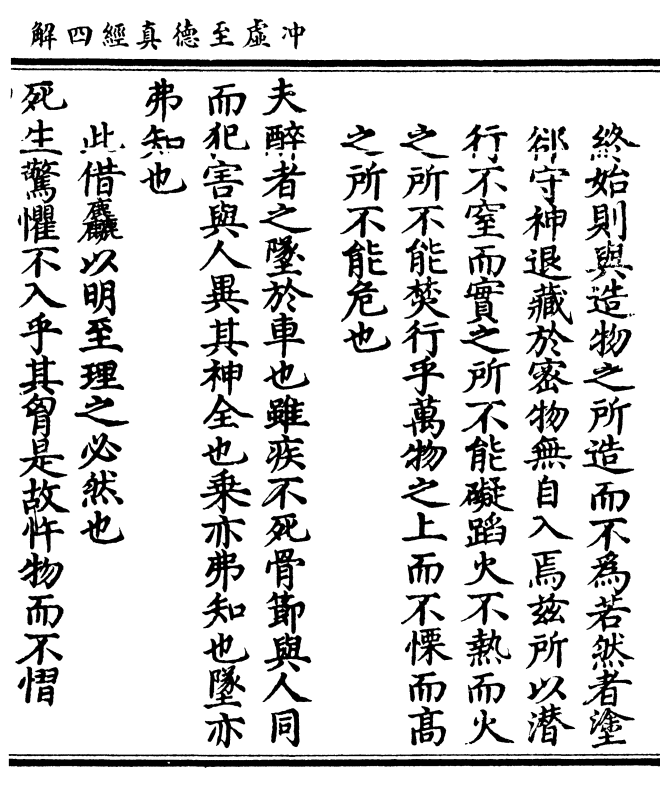 冲虛至德真經四解
終始則與造物之所造而不爲若然者塗
郤守神退藏於密物無自入焉茲所以潜
行不窒而實之所不能礙蹈火不熱而火
之所不能焚行乎萬物之上而不慄而髙
之所不能危也
夫醉者之墜於車也雖疾不死骨節與人同
而犯害與人異其神全也乗亦弗知也墜亦
弗知也
此借麤以明至理之必然也
死生驚懼不入乎其胷是故忤物而不慴